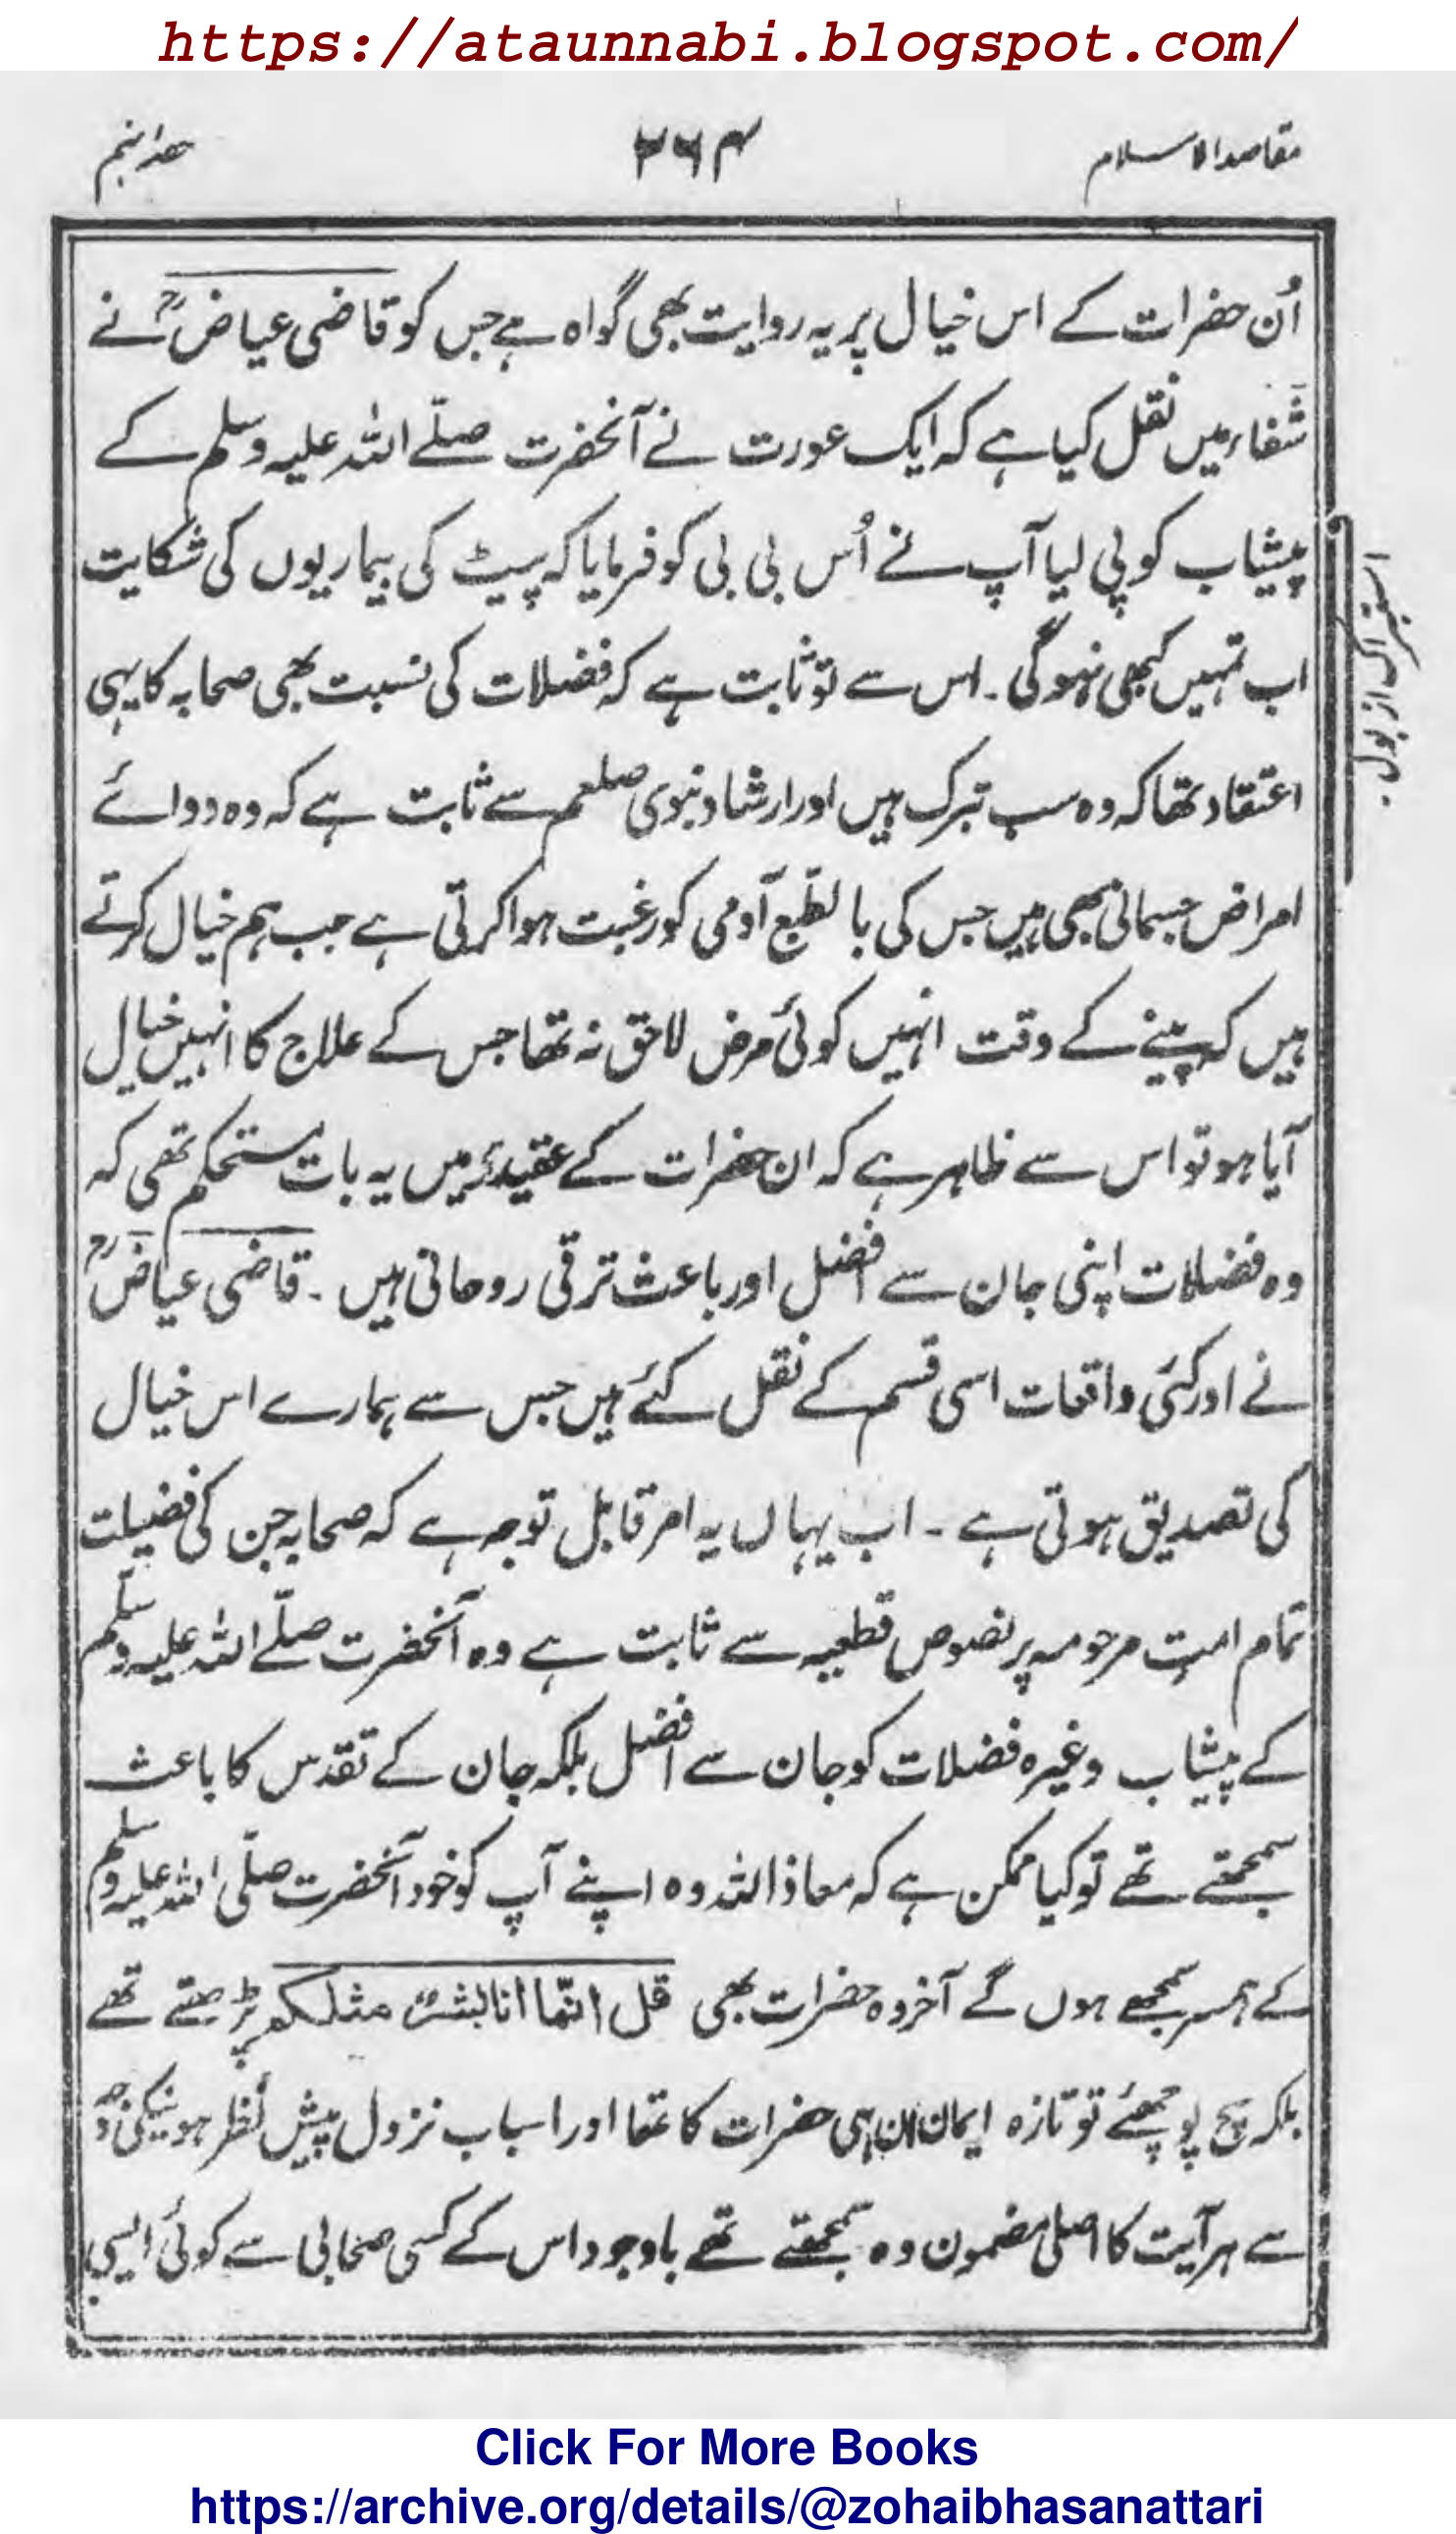 https://ataunnabi.blogspot.com/
مقاصدالاسلام
۲۶۴
حصہ پنجم
اُن حضرات کے اس خیال پر یہ روایت بھی گواہ ہے جس کو قاضی عیاضؒ نے
شفاء میں نقل کیا ہے کہ ایک عورت نے آنحضرت صلّے اللہ علیہ وسلم کے
پیشاب کو پی لیا آپ نے اُس بی بی کو فرمایا کہ پیٹ کی بیماریوں کی شکایت
اب تمہیں کبھی نہوگی ۔ اس سے تو ثابت ہے کہ فضلات کی نسبت بھی صحابہ کا یہی
اعتقاد تھا کہ وہ سب تبرک ہیں اور ارشاد نبوی صلعم سے ثابت ہے کہ وہ دوائے
امراض جسمانی بھی ہیں جس کی بالطبع آدمی کو رغبت ہوا کرتی ہے جب ہم خیال کرتے
ہیں کہ پینے کے وقت انہیں کوئی مرض لاحق نہ تھا جس کے علاج کا انہیں خیال
آیا ہو تو اس سے ظاہر ہے کہ ان حضرات کے عقیدہ میں یہ بات مستحکم تھی کہ
وہ فضلات اپنی جان سے افضل اور باعث ترقی روحانی ہیں ۔ قاضی عیاضؒ
نے اور کئی واقعات اسی قسم کے نقل کئے ہیں جس سے ہمارے اس خیال
کی تصدیق ہوتی ہے ۔ اب یہاں یہ امر قابل توجہ ہے کہ صحابہ جن کی فضیلت
تمام امت مرحومہ پر نصوص قطعیہ سے ثابت ہے وہ آنحضرت صلّے اللہ علیہ وسلّم
کے پیشاب وغیرہ فضلات کو جان سے افضل بلکہ جان کے تقدس کا باعث
سمجھتے تھے تو کیا ممکن ہے کہ معاذ اللہ وہ اپنے آپ کو خود آنحضرت صلّی اللہ علیہ وسلم
کے ہمسر سمجھے ہوں گے آخر وہ حضرات بھی قل انّما انا بشرٌ مثلکم پڑھتے تھے
بلکہ سچ پوچھئے تو تازہ ایمان ان ہی حضرات کا تھا اور اسباب نزول پیش نظر ہونیکی وجہ
سے ہر آیت کا اصلی مضمون وہ سمجھتے تھے باوجود اس کے کسی صحابی سے کوئی ایسی
استبراک از بول۔
Click For More Books
https://archive.org/details/@zohaibhasanattari